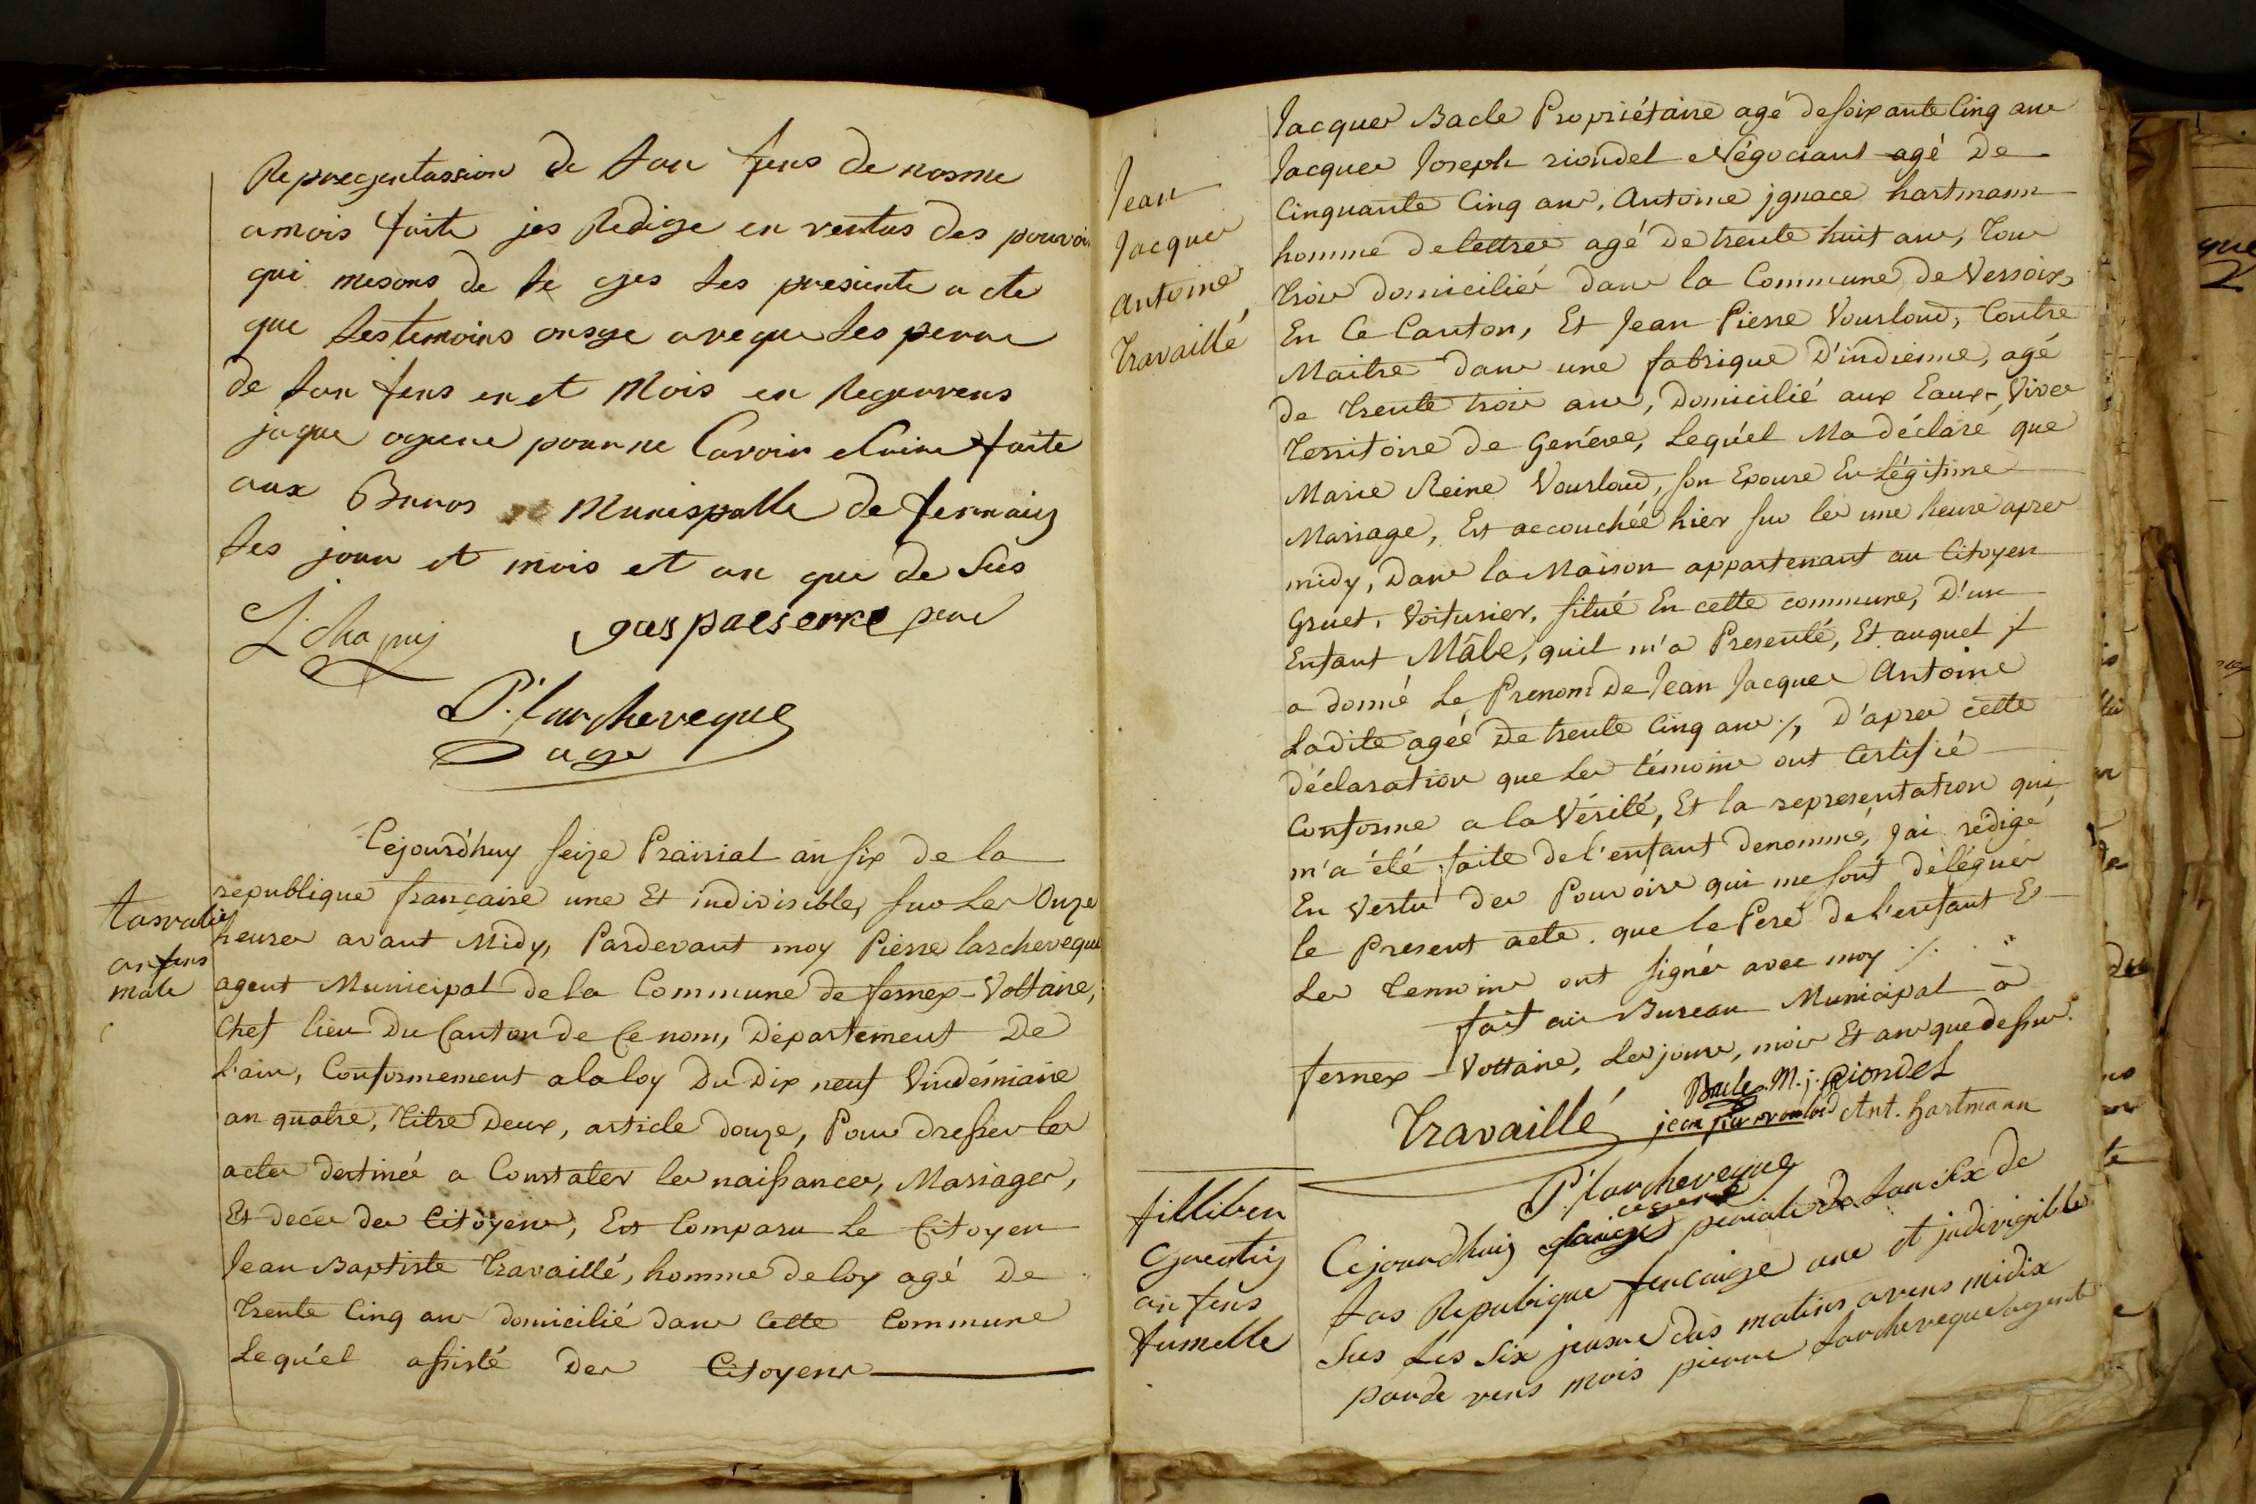 Repraegentassion de son fens de nosme
a mois faite jes Redige en vertus des pouvoir
qui mesons de le gjes les presiente acte
que les temoins onsge a veque les perre
de son fens en et Mois en
jaque pour ne Savoir faite
aux Buros Munispalle de fernaiy
les jour et mois et an que de sus
L. Chapuy
gaspaeserre pere
P. Larcheveque
age
Cejourd'huy seize Prairial an six de la
republique française une Et indivisible, sur Les Onze
heures avant Midy, Pardevant moy Pierre Larcheveque
agent Municipal de la Commune de fernex-Voltaire,
Chef lieu Du Canton de Ce nom, Département De
L'ain, Conformement a la loy Du Dix neuf Vindémiaire
an quatre, titre Deux, article douze, Pour dresser les
actes destinés a Constater les naissances, Mariages,
Et décés des Citoyens, Est Comparu Le Citoyen
Jean Baptiste Travaillé, homme de loy agé De
Trente Cinq ans domicilié dans Cette Commune
Lequ'el assisté Des Citoyens
anfens
male
Jean
Jacques
Antoine
Travaillé
Jacques Bacle Propriétaire agé de soixante Cinq ans
Jacques Joseph riondel Négociant agé De
Cinquante Cinq ans, Antoine jgnace hartmann
homme de lettres agé De trente huit ans, Tous
Trois domiciliés dans la Commune de Versoix,
En Ce Canton, Et Jean Pierre Vourloud, Contre
Maitre dans une fabrique D'indienne, agé
de Trente trois ans, Domicilié aux Eaux-Vives
Territoire de Genéve, Lequ'el M'a déclaré que
Marie Reine Vourloud, son Epouse En Légitime
Mariage, Est accouchée hier sur les une heure apres
midy, Dans la Maison appartenant au Citoyen
Gruet, Voiturier, situé En cette commune, D'un
Enfant Mâle, quil m'a Presenté, Et auquel jl
a donné Le Prenom De Jean Jacques Antoine
Ladite agée De trente Cinq ans ./. D'apres cette
déclaration que Les témoins ont Certifié
Conforme a la Vérité, Et la representation qui
m'a été faite de l'enfant denommé, J'ai rédigé
En Vertu des Pouvoirs qui me sont délégués
le Present acte. que le Pere de l'enfant Et
Les Temoins ont signés avec moy ./.
fait au Bureau Municipal à
fernex-Voltaire, Les jours, mois Et ans que dessus.
Travaillé
Bacle M. j. Riondel
Ant. hartmann
P. Larcheveque
filliben
an fens
fumelle
Cejourdhuiy perialle de lan six de
las Republique francaize une et jndivigible
sus Les six jeusre dus matins avens midix
parde vens mois pierre Larcheveque agent